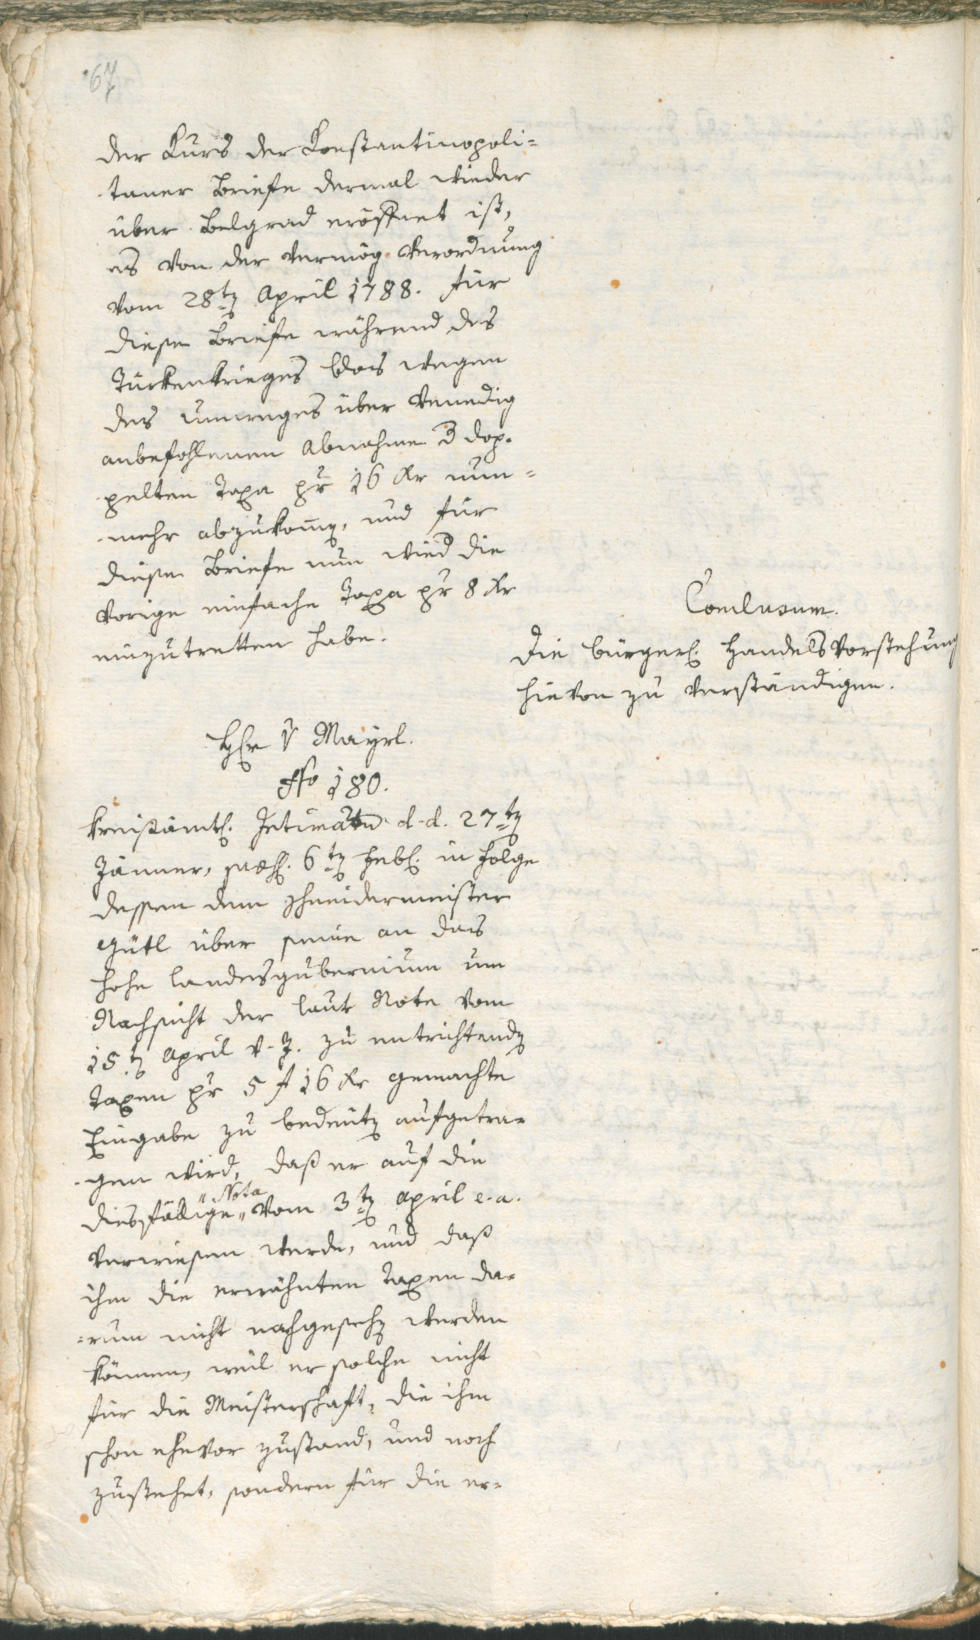 67
der Kurs der Konstantinopoli=
taner Briefe dermal wieder
über Belgrad eröffnet ist,
es von der vermög Verordnung
vom 28ten April 1788. für
diese Briefe während des
Türkenkrieges blos wegen
des Umweges über Venedig
anbefohlenen Abnahme d dop=
pelten Taxa pr 16 Kr nun=
mehr abzukomen, und für
diese Briefe nun wied die
vorige einfache Taxa pr 8 Kr
einzutretten habe.
Conclusum.
Die bürgerl. Handelsvorstehung
hievon zu verständigen.
Hr v Mayrl.
No 180.
Kreisämtl. Intimatn d.d. 27ten
Jänner, 6ten Febl. in Folge
dessen dem Schneidermeister
Gütl über seine an das
hohe Landesgubernium um
Nachsicht der laut Note vom
15ten April v. J. zu entrichtenden
Taxen pr 5 f 16 Kr gemachte
Eingabe zu bedeuten aufgetra=
gen wird, daß er auf die
diesfällige Nota vom 3ten April e. a.
verwiesen werde, und daß
ihm die erwähnten Taxen da=
rum nicht nachgesehen werden
können, weil er solche nicht
für die Meisterschaft, die ihm
schon ehevor zustand, und noch
zustehet, sondern für die er=